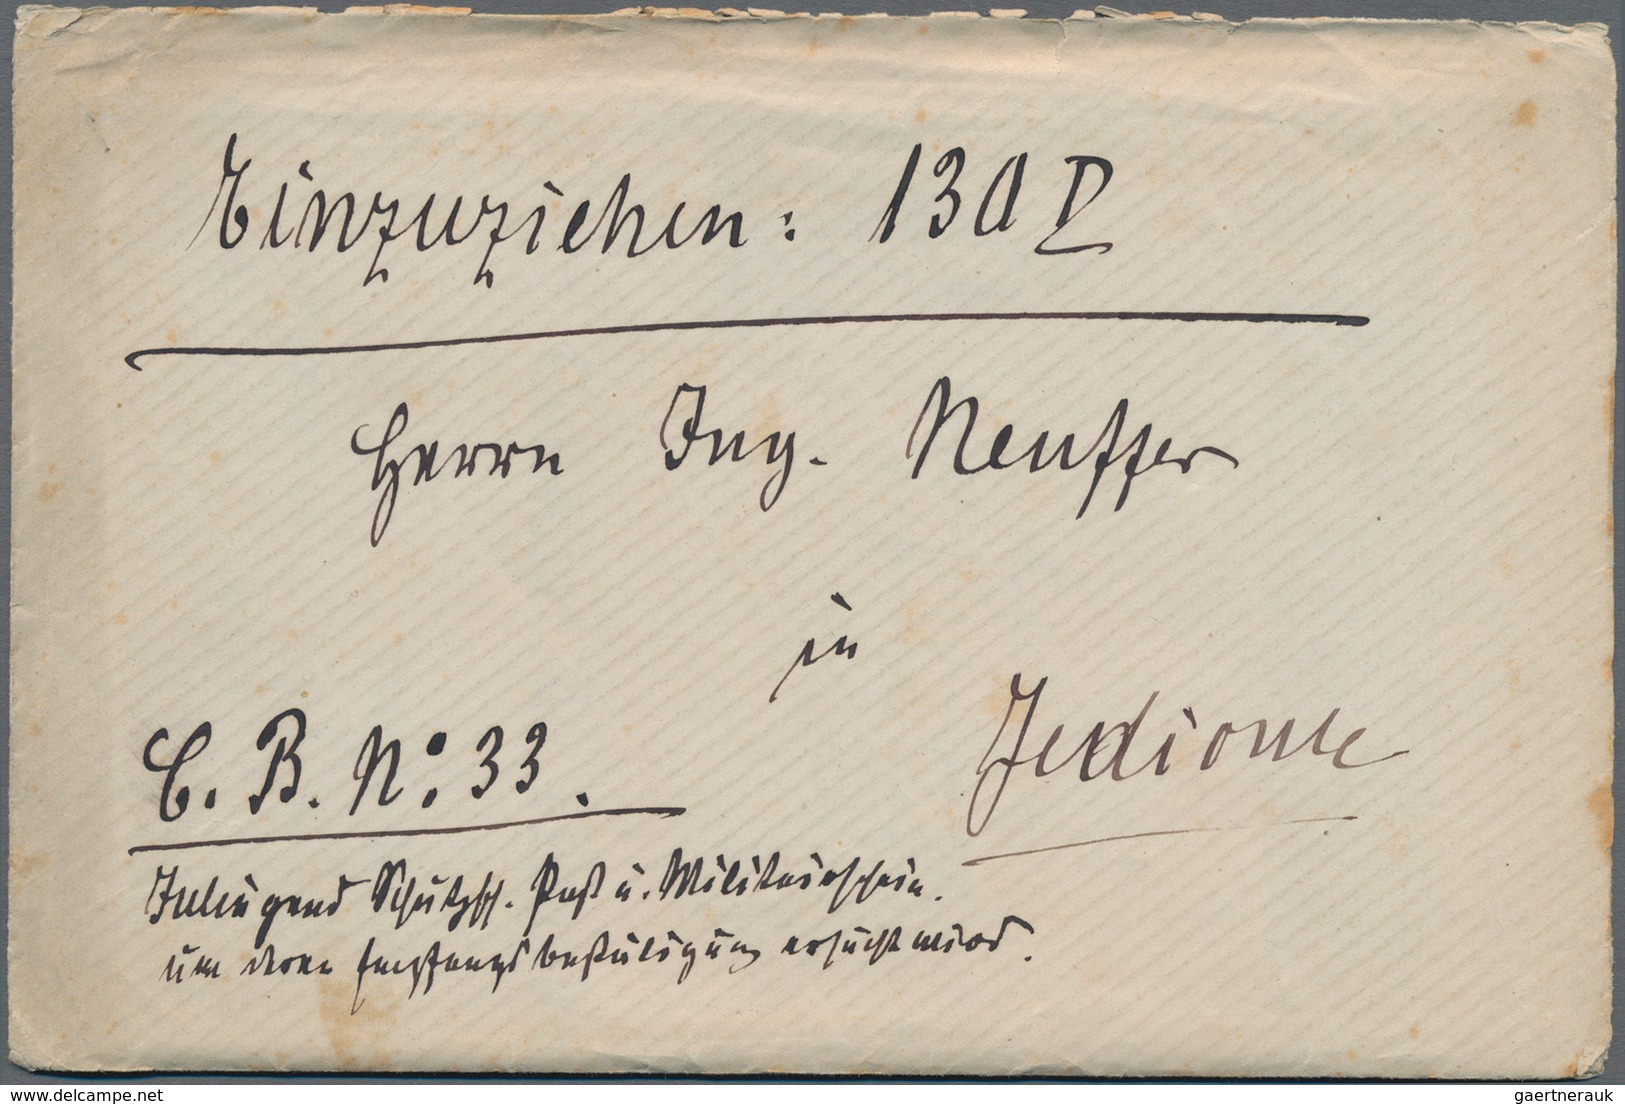 Einzuziehen: 130 P
Herrn Ing. Neuffer
in
C. B. No: 33.
Inliegend Schutzsch. Paß u. Militärschein.
um deren Empfangsbestätigung ersucht wird.
delcampe.net
gaertnerauk